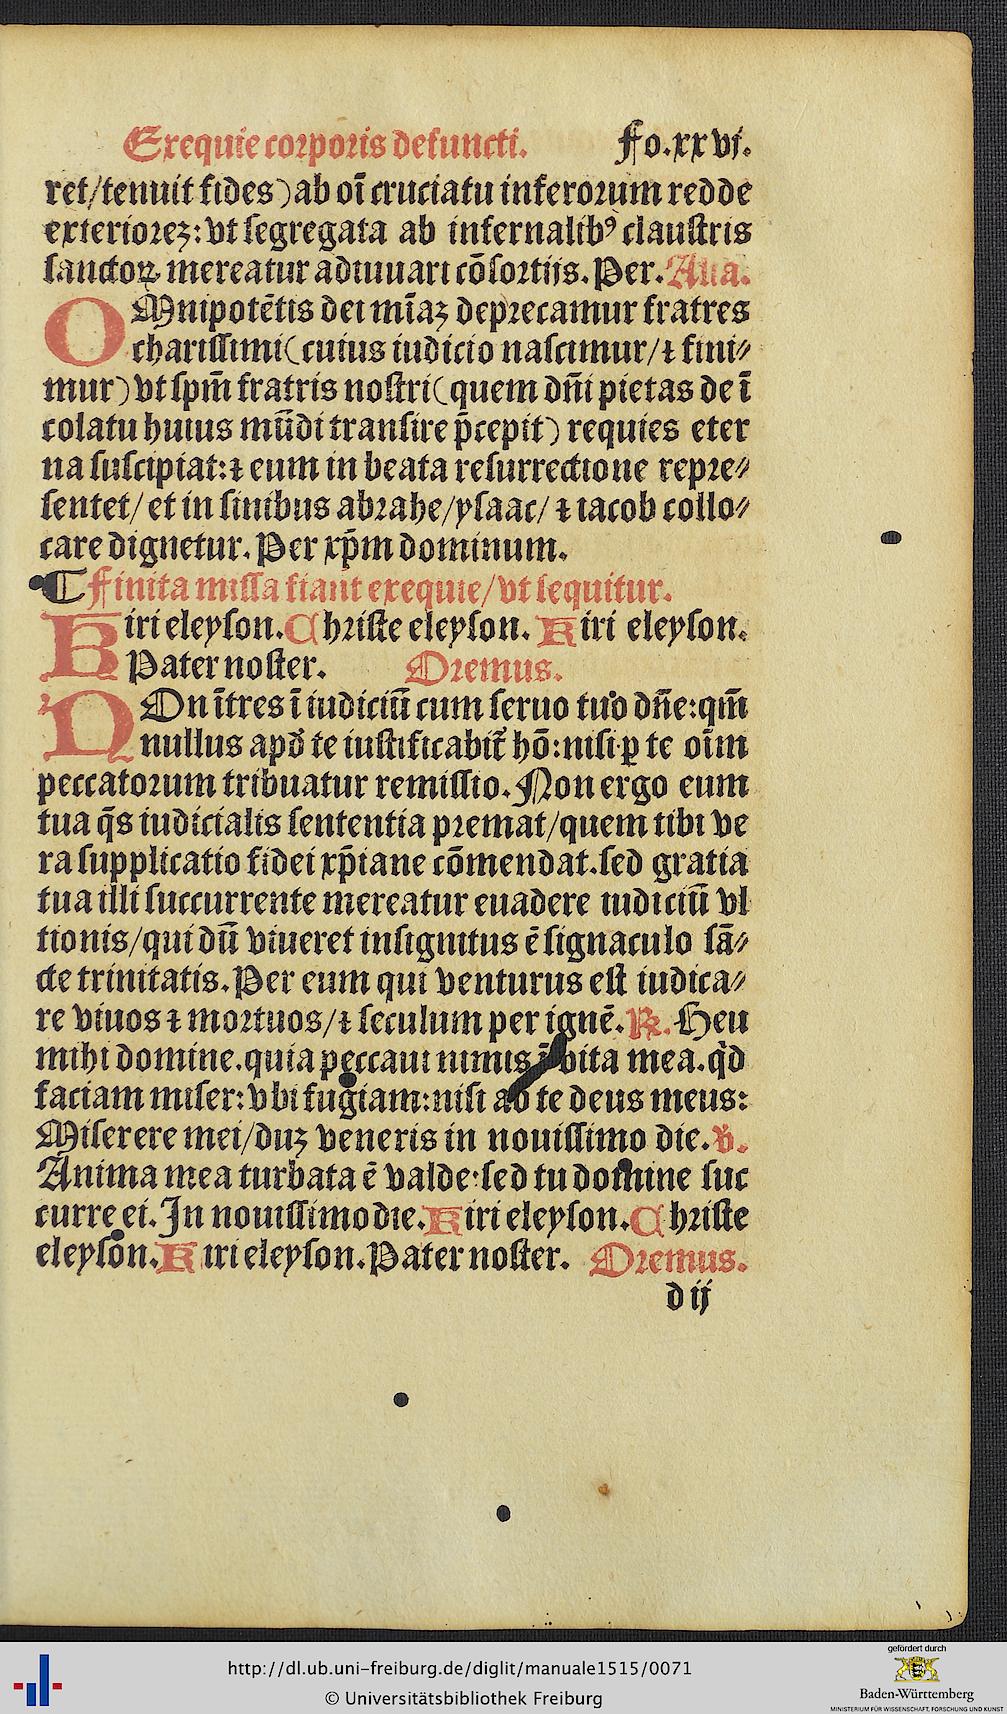 Exequie corporis defuncti. Fo.xxvj.
ret/tenuit fides) ab oī cruciatu inferorum redde
exteriorez: vt segregata ab infernalibꝰ claustris
sanctoꝝ mereatur adiuuari cōsortijs. Per. Alia.
OMnipotētis dei mīaz deprecamur fratres
charissimi (cuius iudicio nascimur/ ⁊ fini⸗
mur) vt spm̄ fratris nostri (quem dn̄i pietas de ī
colatu huius mūdi transire p̄cepit) requies eter
na suscipiat: ⁊ eum in beata resurrectione repre⸗
sentet/ et in sinibus abrahe/ ysaac/ ⁊ iacob collo⸗
care dignetur. Per xp̄m dominum.
¶ Finita missa fiant exequie/ vt sequitur.
Kiri eleyson. Christe eleyson. Kiri eleyson.
Pater noster. Oremus.
NOn ītres ī iudiciū cum seruo tuo dn̄e: qm̄
nullus apđ te iustificabit̄ hō: nisi ꝑ te oīm
peccatorum tribuatur remissio. Non ergo eum
tua q̄s iudicialis sententia premat/ quem tibi ve
ra supplicatio fidei xp̄iane cōmendat. sed gratia
tua illi succurrente mereatur euadere iudiciū vl
tionis/ qui dū viueret insignitus ē signaculo sā⸗
cte trinitatis. Per eum qui venturus est iudica⸗
re viuos ⁊ mortuos/ ⁊ seculum per ignē. ℟. Heu
mihi domine. quia peccaui nimis ī vita mea. qd̄
faciam miser: vbi fugiam: nisi ad te deus meus:
Miserere mei/ duz veneris in nouissimo die. ℣.
Anima mea turbata ē valde: sed tu domine suc
curre ei. In nouissimo die. Kiri eleyson. Christe
eleyson. Kiri eleyson. Pater noster. Oremus.
d ij
http://dl.ub.uni-freiburg.de/diglit/manuale1515/0071
© Universitätsbibliothek Freiburg
gefördert durch
Baden-Württemberg
MINISTERIUM FÜR WISSENSCHAFT, FORSCHUNG UND KUNST